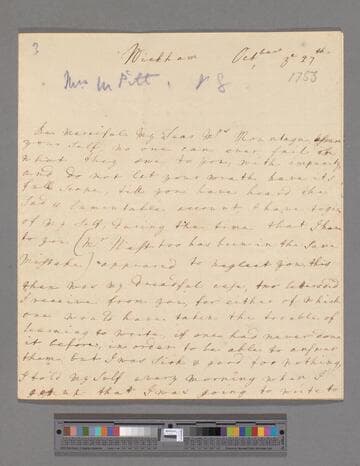 3
Wickham Octber ye 27th
Mrs M Pitt, 1753
Be Merciful My Dear Mrs Montagu
your self, no one can ever fail in
what they owe to you, with impunity
and do not let your wrath have its
full Scope, till you have heard the
Sad & lamentable account I have to give
of my Self, during the time that I have
to you (Mr West too has been in the Same
Mistake) appeared to neglect you, this
then was my Dreadful case, two letters did
I receive from you, for either of which
one would have taken the trouble of
learning to write, if one had never done
it before, in order to be able to answer
them, but I was Sick & good for nothing
I told my Self every morning when I
got up that I was going to write to